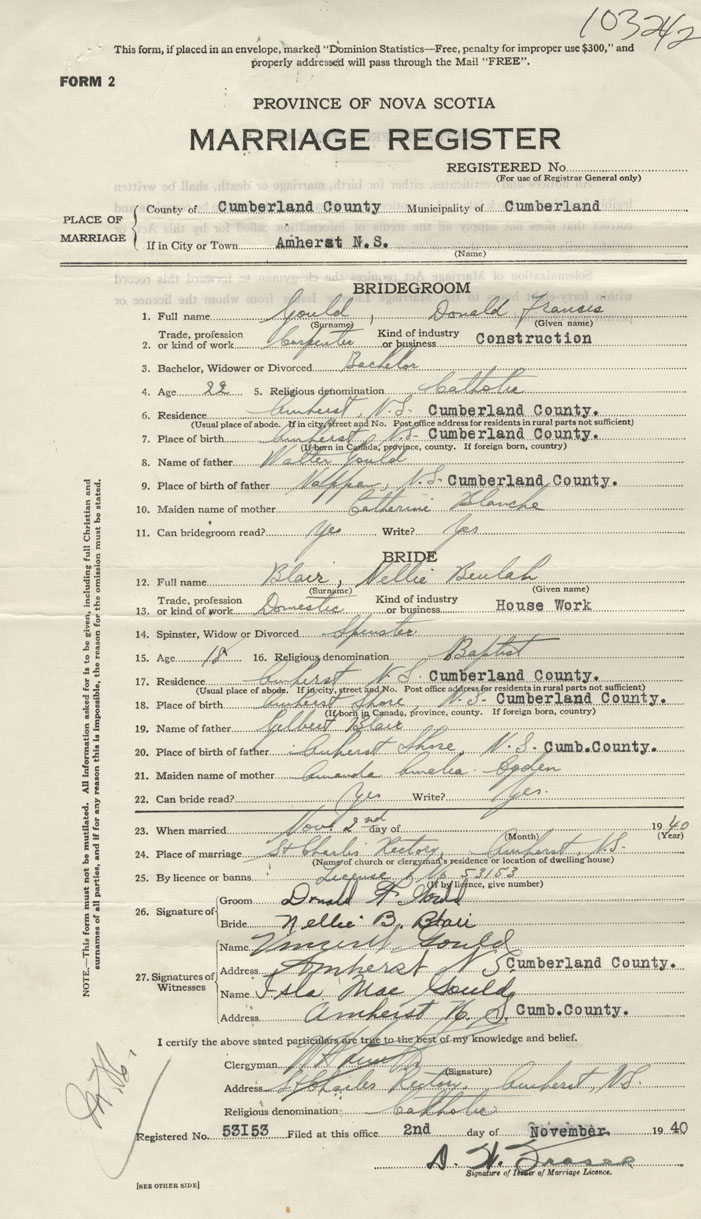 103242
This form, if placed in an envelope, marked "Dominion Statistics—Free, penalty for improper use $300," and
properly addressed will pass through the Mail "FREE".
FORM 2
PROVINCE OF NOVA SCOTIA
MARRIAGE REGISTER
REGISTERED No
(For use of Registrar General only)
PLACE OF MARRIAGE
County of Cumberland County Municipality of Cumberland
If in City or Town Amherst N.S.
(Name)
BRIDEGROOM
1. Full name Gould, Donald Francis
(Surname) (Given name)
2. Trade, profession or kind of work Carpenter Kind of industry or business Construction
3. Bachelor, Widower or Divorced Bachelor
4. Age 22 5. Religious denomination Catholic
6. Residence Amherst, N.S. Cumberland County.
(Usual place of abode. If in city, street and No. Post office address for residents in rural parts not sufficient)
7. Place of birth Amherst N.S. Cumberland County.
(If born in Canada, province, county. If foreign born, country)
8. Name of father Walter Gould
9. Place of birth of father Nappan, N.S. Cumberland County.
10. Maiden name of mother Catherine Blanche
11. Can bridegroom read? Yes Write? Yes
BRIDE
12. Full name Blair, Nellie Beulah
(Surname) (Given name)
13. Trade, profession or kind of work Domestic Kind of industry or business House Work
14. Spinster, Widow or Divorced Spinster
15. Age 18 16. Religious denomination Baptist
17. Residence Amherst N.S. Cumberland County.
(Usual place of abode. If in city, street and No. Post office address for residents in rural parts not sufficient)
18. Place of birth Amherst Shore, N.S. Cumberland County.
(If born in Canada, province, county. If foreign born, country)
19. Name of father Gilbert Blair
20. Place of birth of father Amherst Shore, N.S. Cumb.County.
21. Maiden name of mother Amanda Amelia Ogden
22. Can bride read? Yes Write? Yes.
23. When married Nov 2nd day of 1940
(Month) (Year)
24. Place of marriage St Charles Rectory, Amherst, N.S.
(Name of church or clergyman's residence or location of dwelling house)
25. By licence or banns License No 53153
(If by licence, give number)
26. Signature of
Groom Donald F Gould
Bride Nellie B. Blair
27. Signatures of Witnesses
Name Vincent Gould
Address Amherst N S Cumberland County.
Name Isla Mae Gould
Address Amherst N. S. Cumb.County.
I certify the above stated particulars are true to the best of my knowledge and belief.
Clergyman
(Signature)
Address St Charles Rectory, Amherst, N.S.
Religious denomination Catholic
Registered No. 53153 Filed at this office 2nd day of November. 1940
Signature of Issuer of Marriage Licence.
[SEE OTHER SIDE]
NOTE.—This form must not be mutilated. All Information asked for is to be given, including full Christian and
surnames of all parties, and if for any reason this is impossible, the reason for the omission must be stated.